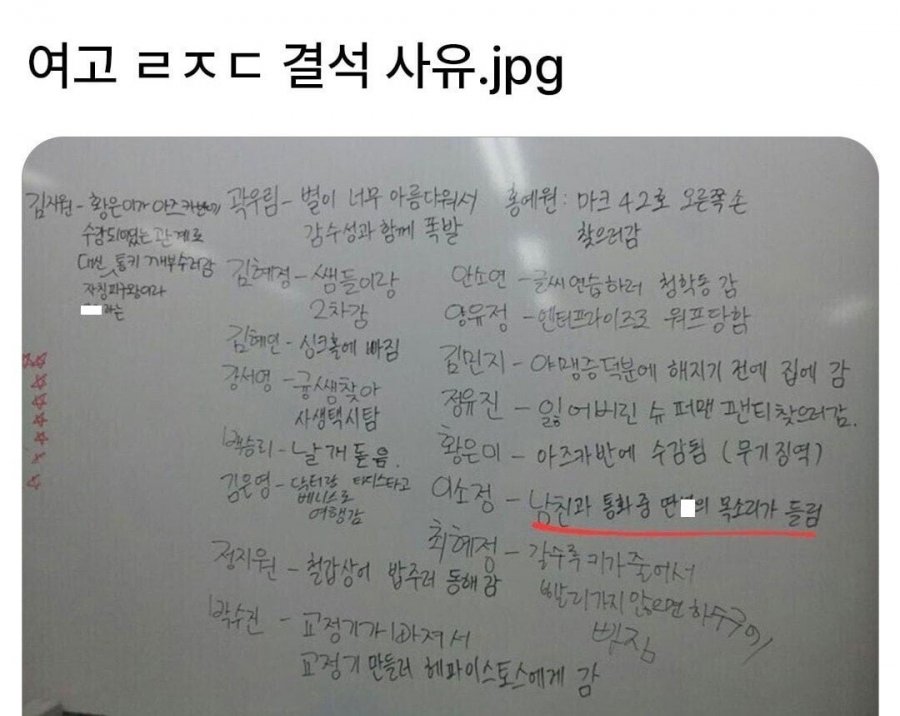 여고 ㄹㅈㄷ 결석 사유.jpg
김지원 - 황은이가 아즈카반에
수감되었는 관계로
대신 퉁키 깨부수러감
자칭피구왕이라
라는
곽우림 - 별이 너무 아름다워서
감수성과 함께 폭발
김혜정 - 쌤들이랑
2차감
김혜인 - 싱크홀에 빠짐
강서영 - 귱쌤찾아
사생택시탐
백승리 - 날개 돋음.
김은영 - 닥터랑 타디스타고
베니스로
여행감
정지원 - 철갑상어 밥주러 동해 감
박수진 - 교정기가 빠져서
교정기 만들러 헤파이스토스에게 감
홍예원 : 마크 42호 오른쪽 손
찾으러감
안소연 - 글씨연습하러 청학동 감
양유정 - 엔터프라이즈로 워프당함
김민지 - 야맹증덕분에 해지기 전에 집에 감
정유진 - 잃어버린 슈퍼맨 팬티찾으러감.
황은미 - 아즈카반에 수감됨 (무기징역)
이소정 - 남친과 통화중 딴 의 목소리가 들림
최혜정 - 갈수록 키가 줄어서
빨리가지 않으면 하수구에
빠짐